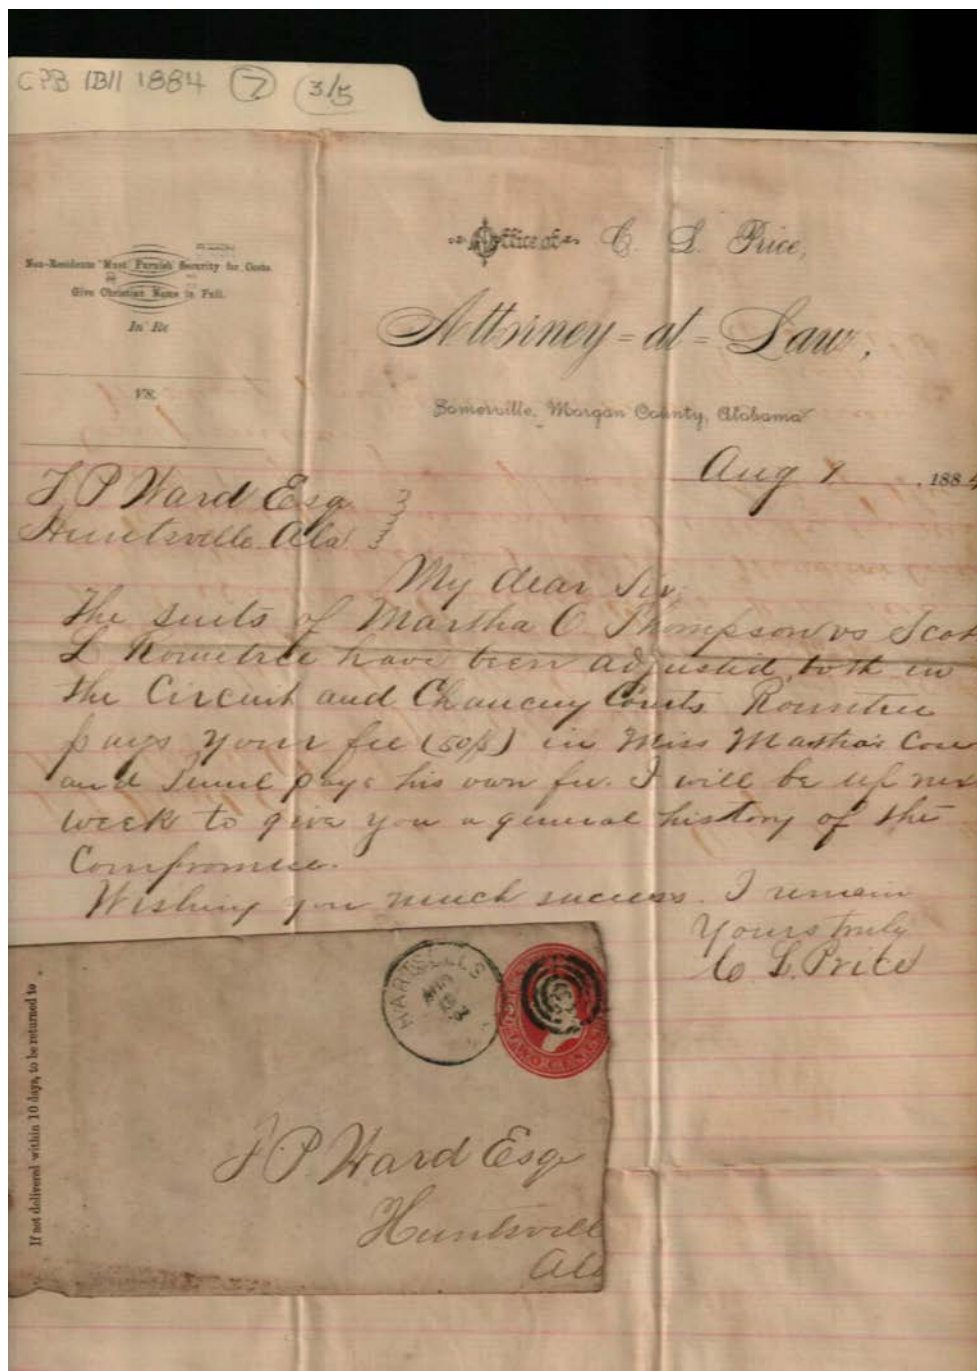 CPB IBII 1884 7 3/5
Office of C. L. Price,
Non-Residents Must Furnish Security for Costs
Give Christian Name in Full.
In Re
Attorney-at-Law,
VS.
Somerville, Morgan County, Alabama
Aug 9, 1884
T. P Ward Esq
Huntsville Ala
My dear Sir,
The suits of Martha O. Thompson vs Scot
L Rowntree have been adjusted, both in
the Circuit and Chancery Courts Rountree
pays your fee (50$) in Miss Martha's Case
and pays his own fee. I will be up nex
week to give you a general history of the
Compromise.
Wishing you much success. I remain
Yours truly
C L. Price
HARTSELLS
If not delivered within 10 days, to be returned to
T P Ward Esq
Huntsvill
Ala